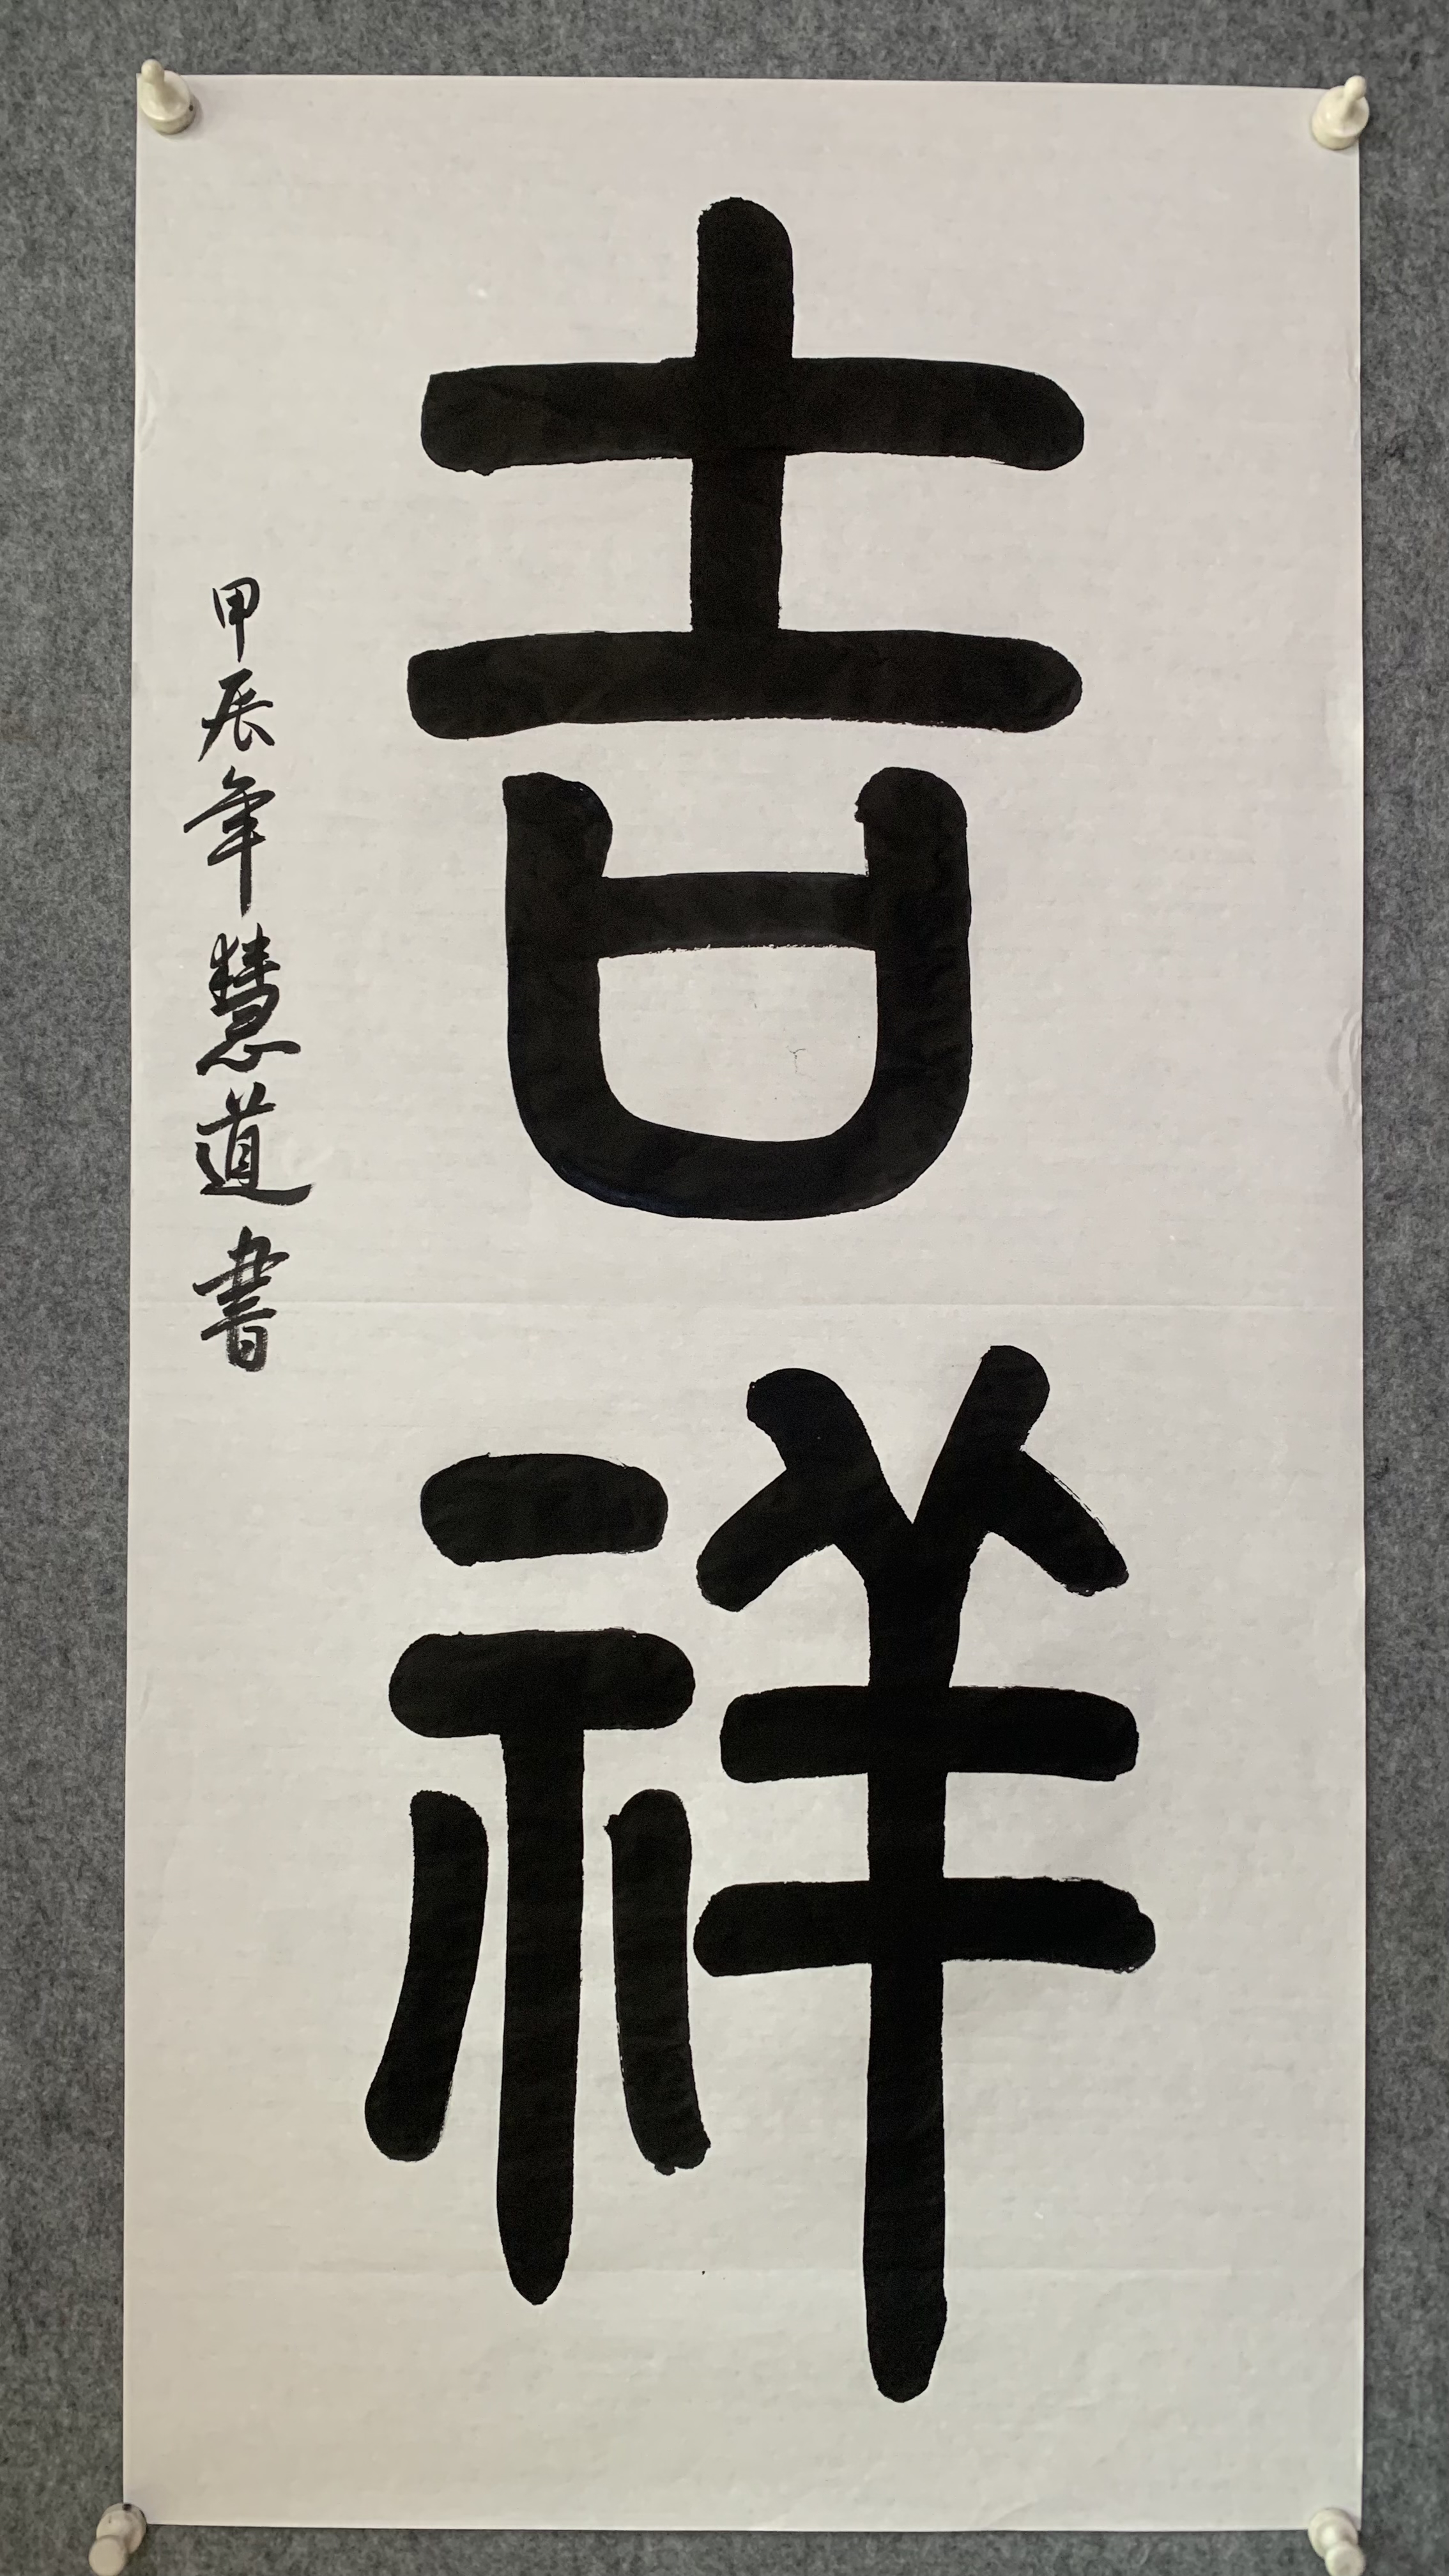 吉祥
甲辰年慧道書